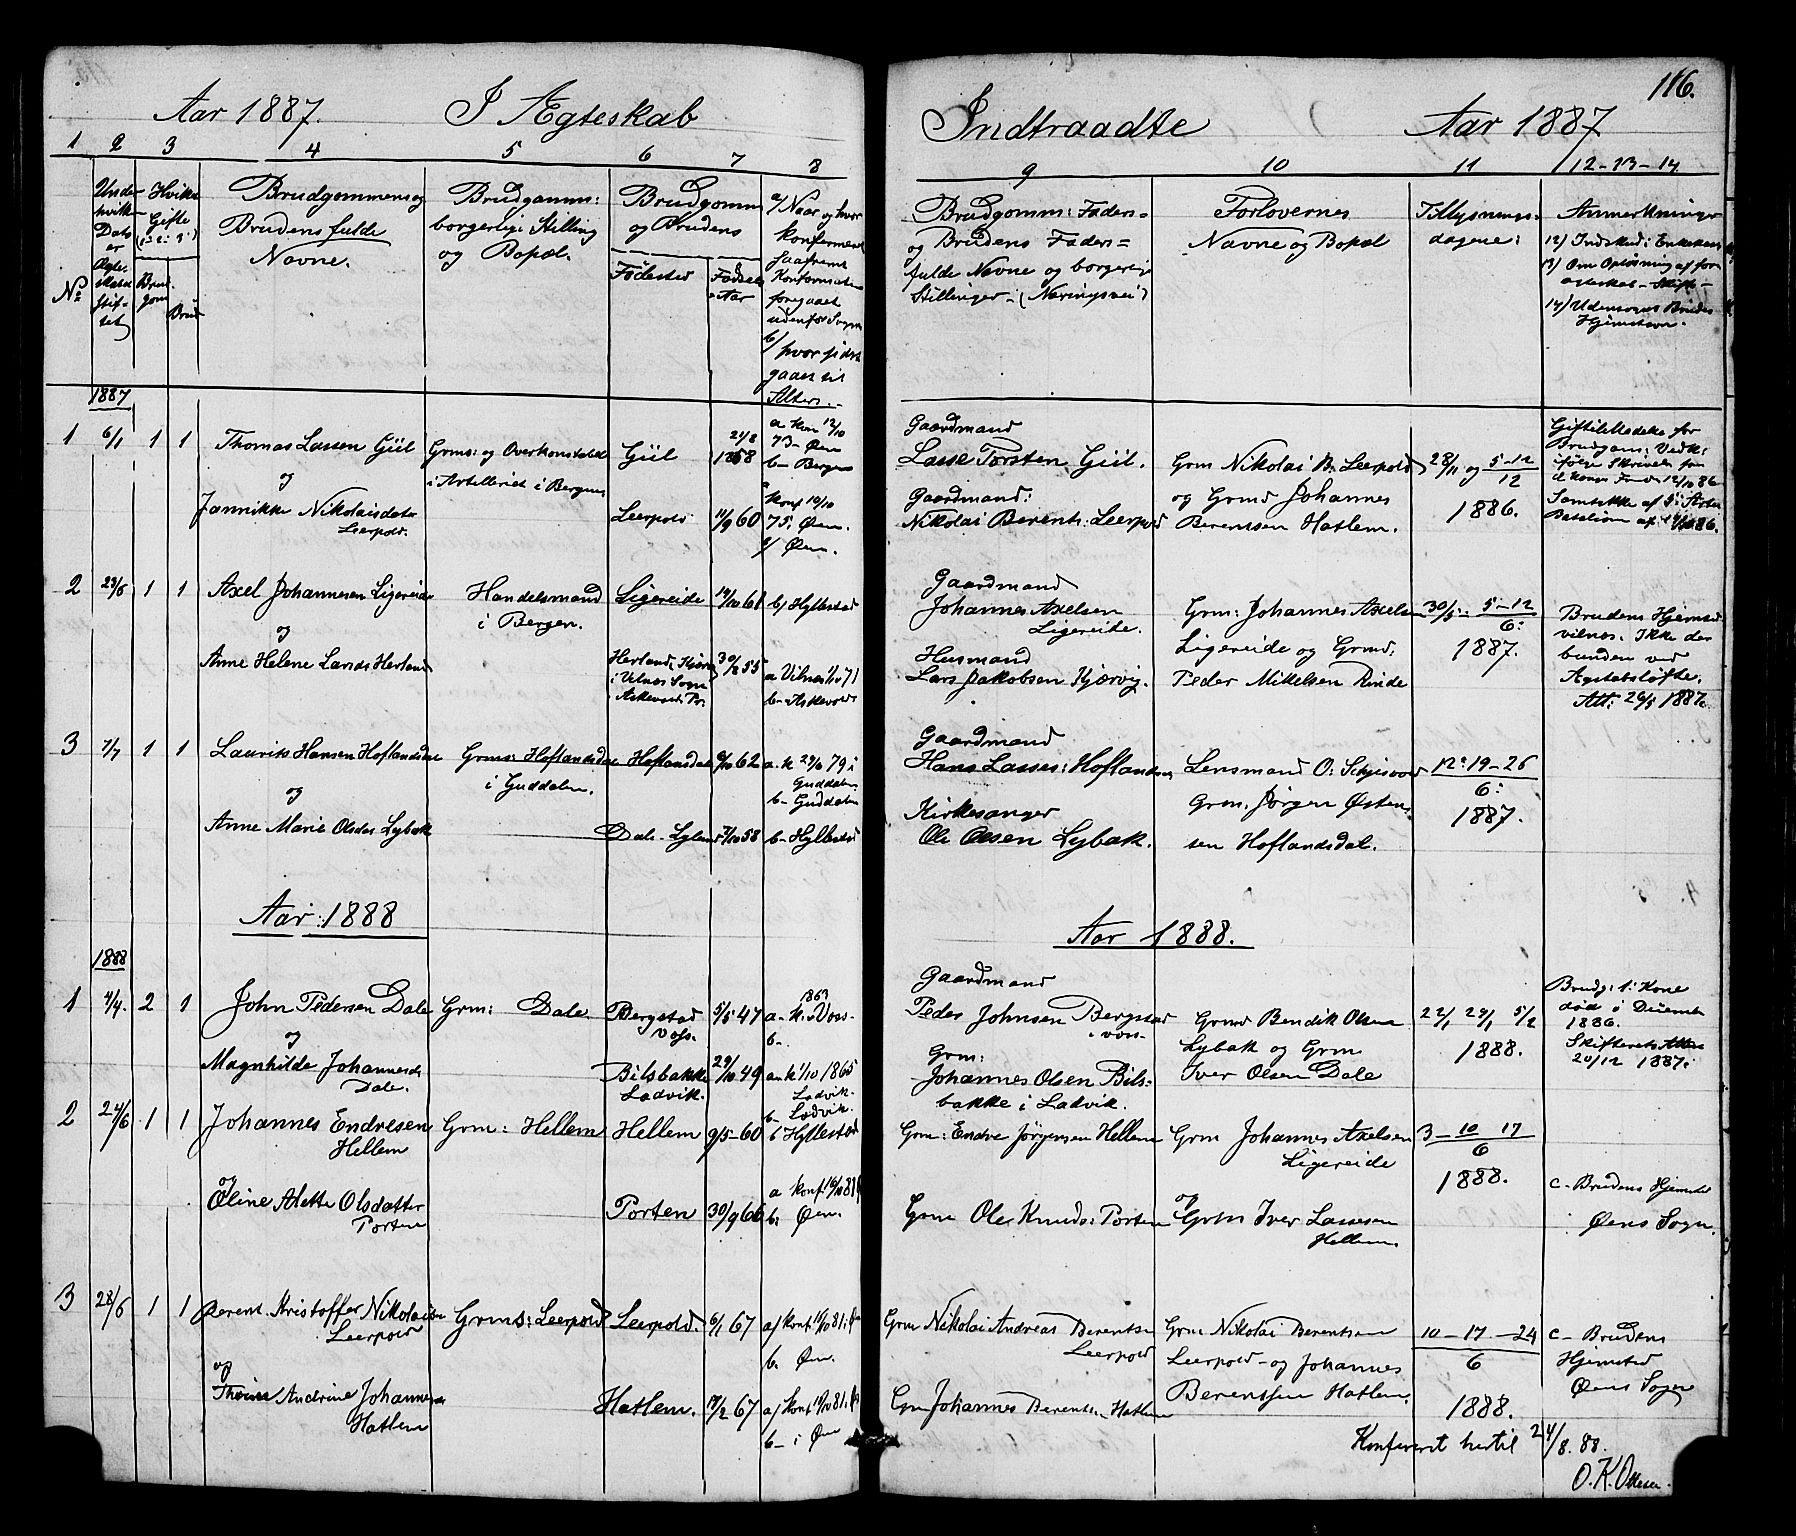 116.
Aar 1887. I Ægteskab
1 2 3 4 5 6 7 8
No
Under hvilken Dato er Ægteskabet stiftet
Hvilke Gifte
Brudgom
Brud
Brudgommens og
Brudens fulde
Navne.
Brudgomm:
borgerlige Stilling
og Bopæl.
Brudgomm
og Brudens
Fødested
Fødsels
Aar
a/ Naar og hvor
konfirmeret
saafremt
Konfirmation
foregaaet
udenfor Sogn
b/ hvor sidst
gaaet til
Alters.
1887
1 6/1 1 1 Thomas Lassen Giil Grms: og Overkonstabel Giil 21/8 1858 a Konf 12/10
i Artilleriet i Bergen 73 - Øen
og b - Bergen
Jannikke Nikolaisdatr Leerpold 11/9 60 Konf 10/10
Leerpold. 75, Øen.
b/ Øen.
2 23/6 1 1 Axel Johannesen Ligereide Handelsmand Ligereide 19/10 61 b/ Hyllestad
og i Bergen.
Anne Helene Larsds Herland Herland, Kjørvig 30/8 55 a Vilnes 1/10 71
i Vilnes Sogn b - Askevold
Askevold Pr.
3 7/7 1 1 Laurits Hansen Hoflandsdal Grms: Hoflandsdal Hoflandsdal 9/10 62 a. k 29/6 79 i
og i Guddalen. Guddalen
b - Guddalen
Anne Marie Olsdtr Lybæk Dale - Lyland 7/10 58 b - Hyllestad
Aar: 1888
1888
1 4/4. 2 1 John Pedersen Dale Grm: Dale Bergstad 5/5 47 1863
og Voss. a - k. Voss -
b -
Magnhilde Johannesd. Bilsbakke 29/10 49 a - k 1/10 1865
Dale. Ladvik. Ladvik
b - Ladvik.
2 24/6 1 1 Johannes Endresen Grm: Hellem Hellem 9/5 - 60 b Hyllestad
Hellem
og
Oline Alette Olsdatter Porten 30/9 66 a konf. 16/10 81
Porten b: Øen.
3 28/6 1 1 Berent Kristoffer Nikolaisen Grms: Leerpold Leerpold. 6/1 67 a/ konf. 16/10 81:
Leerpold b. Øen.
og
Andrine Johannesen Hatlem. 19/2 67 a/ konf. 16/10 81:
Hatlem b - i Øen
Indtraadte Aar 1887
9 10 11 12-13-14
Brudgomm: Faders-
og Brudens Faders=
fulde Navne og borgerlige
Stillinger - (Næringsvei)
Forlovernes
Navne og Bopæl
Tillysnings-
dagene:
Anmerkninger
12) Indsked: Enkekasse
13) Om Opløsning af for
ægteskab - Skifte -
14) Udensogns Brudes
Hjemstavn.
Gaardmand
Lasse Torsten Giil. Grm Nikolai B. Leerpold 28/11 og 5-12/12
Gaardmand: og Grmd Johannes 1886.
Nikolai Berents: Leerpold Berentsen Hatlem.
Giftetilladelse for
Brudgom: Vedk:
ifølge Skrivelse fra
12/10 86
Samtykke af 5:
Bataljon af 86.
Gaardmand
Johannes Axelsen Grm: Johannes Axelsen 30/5: 5-12/6: Brudens Hjemsted
Ligereide. Ligereide og Grmd, 1887. vilnes. Ikke
Husmand bunden ved
Lars Jakobsen Kjørvig. Peder Mikkelsen Rinde Ægteskabsløfte.
Att: 26/5 1887.
Gaardmand
Hans Lasses: Hoflandsdal Lensmand O: 12: 19-26/6:
Kirkesanger Grm. Jørgen Østen 1887.
Ole Olsen Lybæk. sen Hoflandsdal.
Aar 1888.
Gaardmand
Peder Johnsen Bergstad Grmd Bendik Olsen 22/1 29/1 5/2 Brudg: 1: Kone
i Voss Lybæk og Grm 1888. død i Decemb
Grm: Iver Olsen Dale 1886.
Johannes Olsen Bils- Skifterets Attest
bakke i Ladvik. 20/12 1887:
Grm: Endre Jørgensen Hellem Grm Johannes Axelsen 3 - 10 17/6
Ligereide 1888. c - Brudens Hjemsted
Grm Ole Knuds: Porten og Grm Iver Lassesen Øens Sogn.
Hellem
Grm Nikolai Andreas Berentsen Grm Nikolai Berentsen 10 - 17 - 24/6 c - Brudens
Leerpold Leerpold - og Johannes Hjemsted
Grm Johannes Berents. Hatlem Berentsen Hatlem. 1888. Øens Sogn
Konfereret hertil 24/8. 88.
O. K. Ottesen.